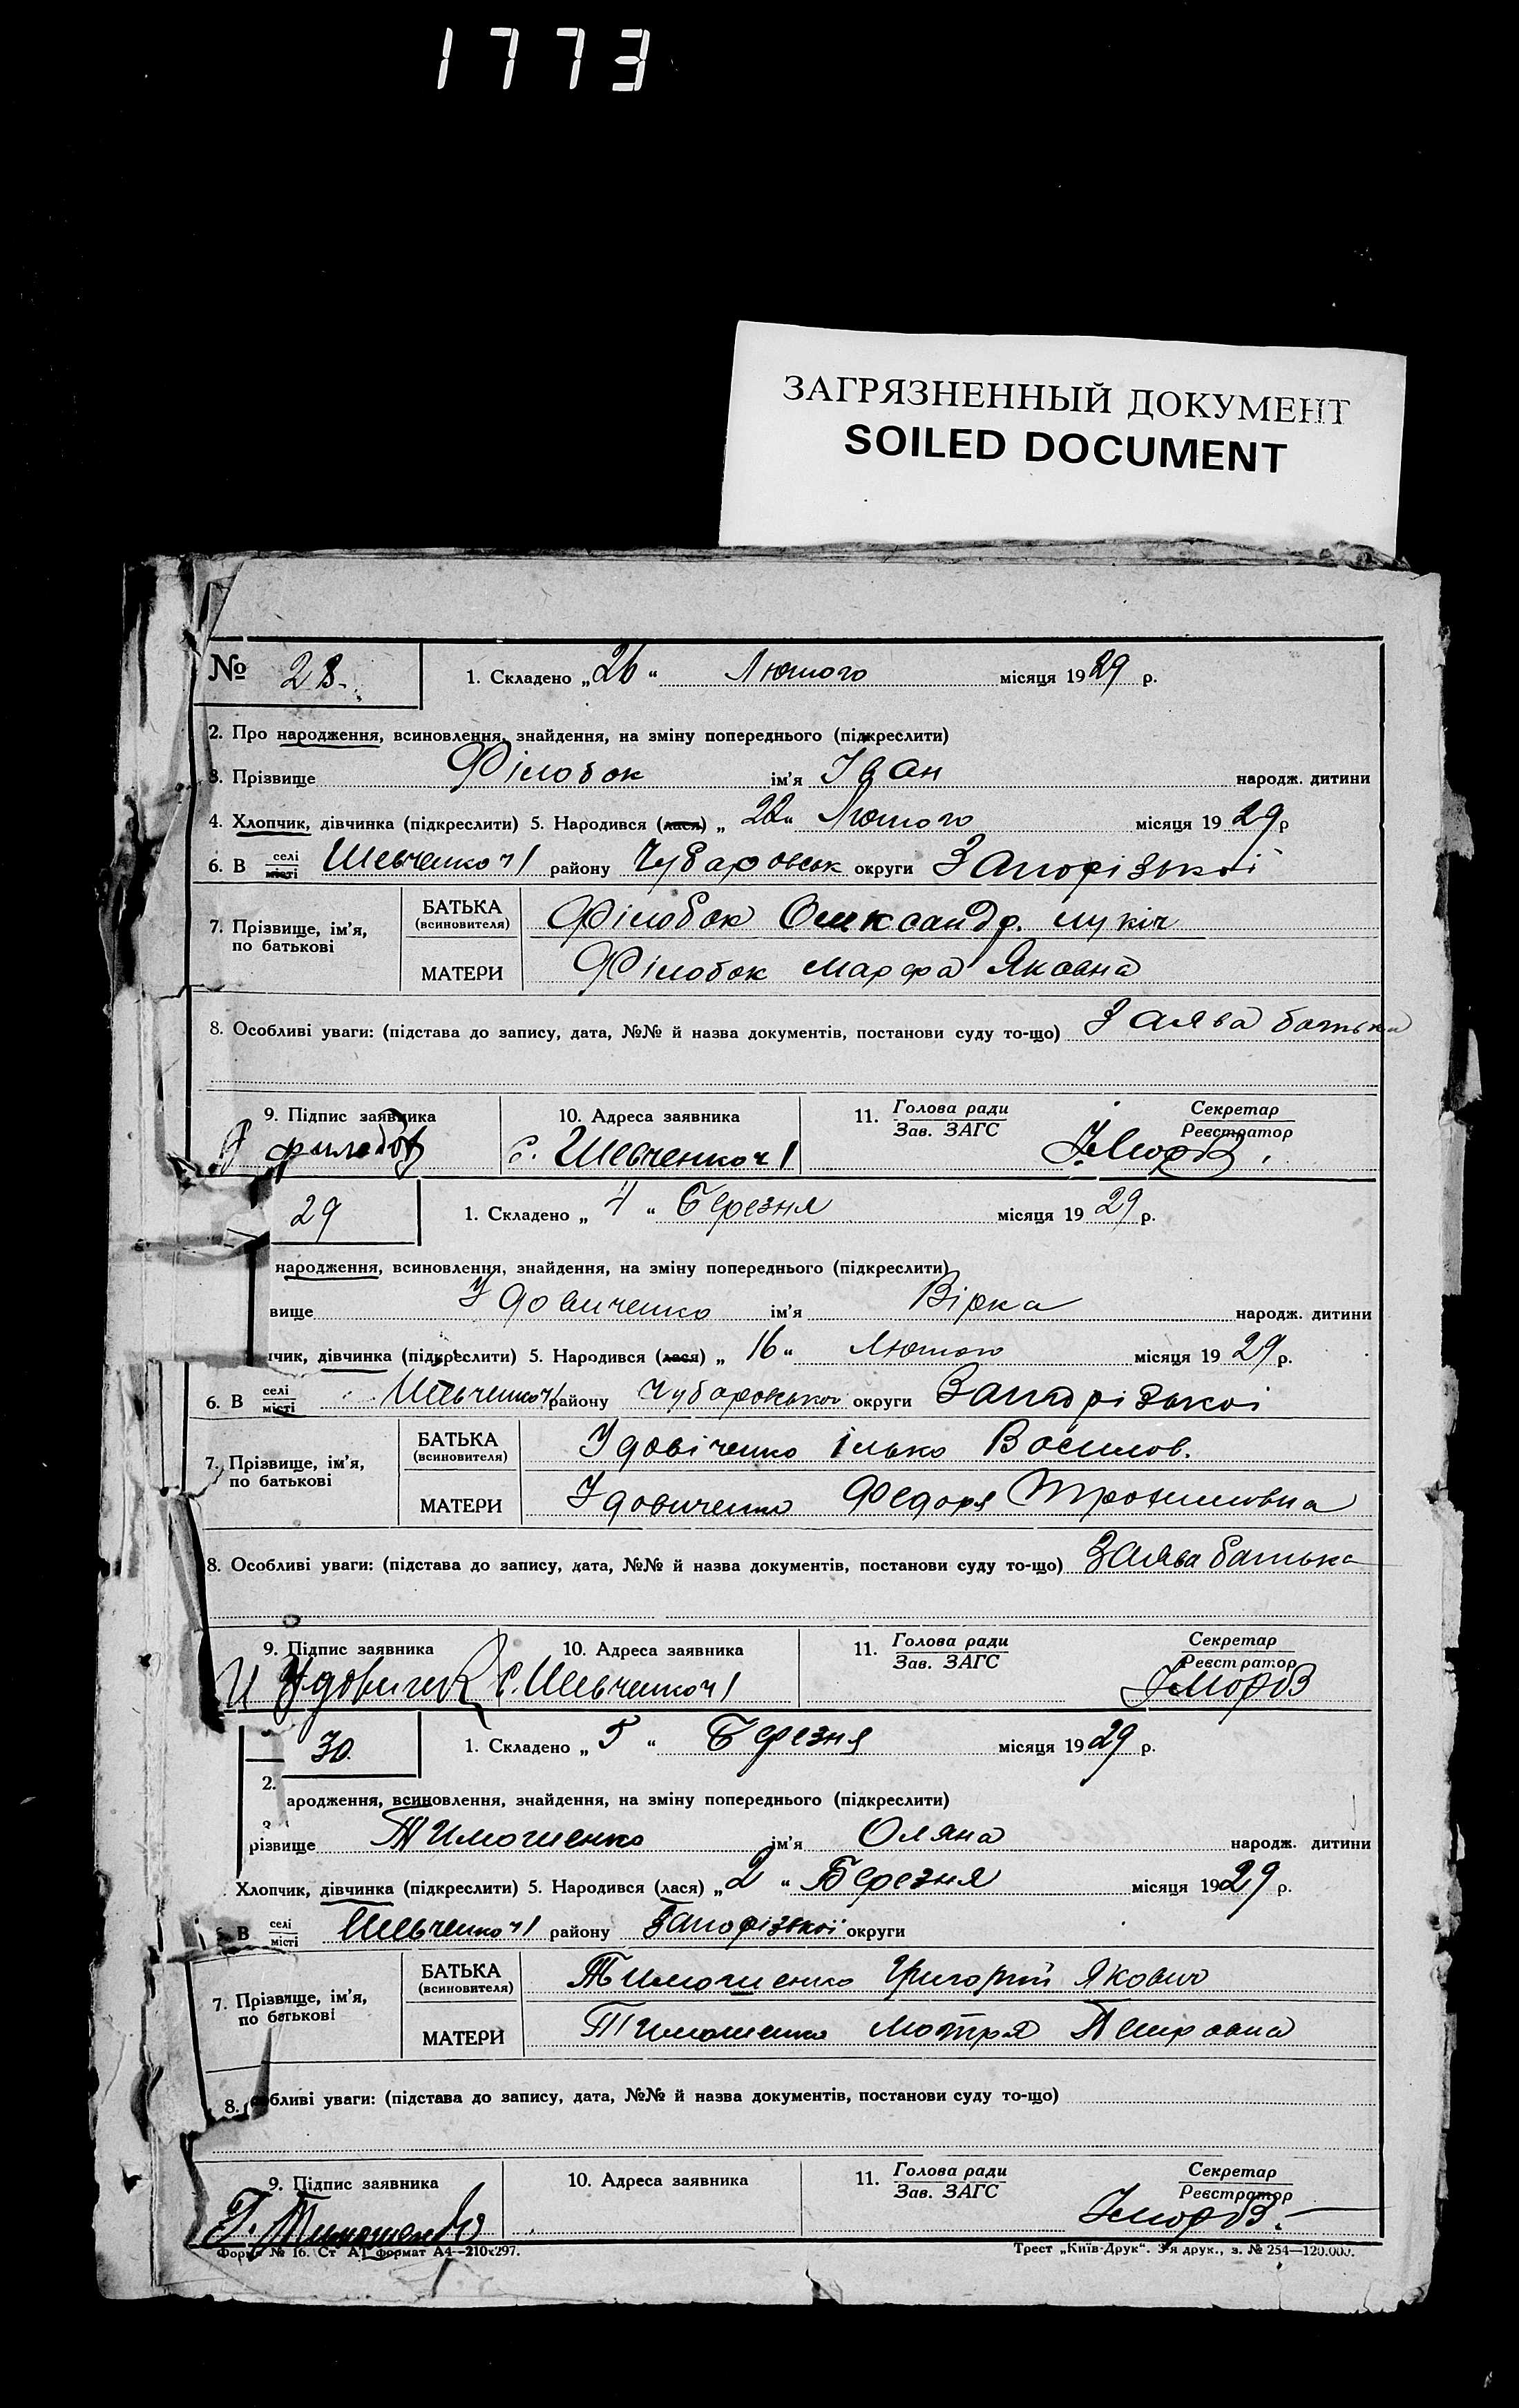 1773
ЗАГРЯЗНЕННЫЙ ДОКУМЕНТ
SOILED DOCUMENT
№ 28. 1. Складено „26“ Лютого місяця 1929 р.
2. Про народження, всиновлення, знайдення, на зміну попереднього (підкреслити)
3. Прізвище Філобок ім'я Іван народж. дитини
4. Хлопчик, дівчинка (підкреслити) 5. Народився (лася) „22“ Лютого місяця 1929 р
6. В селі місті Шевченко ч 1 району Чубаровськ округи Запорізькоі
7. Прізвище, ім'я, по батькові БАТЬКА (всиновителя) Філобок Олександр. Лукіч
МАТЕРИ Філобок Марфа Яковна
8. Особливі уваги: (підстава до запису, дата, №№ й назва документів, постанови суду то-що) Заява батька
9. Підпис заявника 10. Адреса заявника 11. Голова ради Зав. ЗАГС Секретар Реєстратор
с. Шевченко ч 1
29 1. Складено „4“ Березня місяця 1929 р.
народження, всиновлення, знайдення, на зміну попереднього (підкреслити)
вище Удовиченко ім'я Вірка народж. дитини
чик, дівчинка (підкреслити) 5. Народився (лася) „16“ Лютого місяця 1929 р.
6. В селі місті Шевченко ч 1 району Чубаровськоі округи Запорізькоі
7. Прізвище, ім'я, по батькові БАТЬКА (всиновителя) Удовіченко Ілько Василов.
МАТЕРИ Удовиченко Федоря Трохимовна
8. Особливі уваги: (підстава до запису, дата, №№ й назва документів, постанови суду то-що) Заява батька
9. Підпис заявника 10. Адреса заявника 11. Голова ради Зав. ЗАГС Секретар Реєстратор
И Удовиченк с. Шевченко ч 1 Мороз
30. 1. Складено „5“ Березня місяця 1929 р.
2.
ародження, всиновлення, знайдення, на зміну попереднього (підкреслити)
3
різвище Тимошенко ім'я Оляна народж. дитини
Хлопчик, дівчинка (підкреслити) 5. Народився (лася) „2“ Березня місяця 1929 р.
В селі місті Шевченко ч 1 району Запорізькоі округи
7. Прізвище, ім'я, по батькові БАТЬКА (всиновителя) Тимошенко Григорій Якович
МАТЕРИ Тимошенко Мотря Петровна
8. обливі уваги: (підстава до запису, дата, №№ й назва документів, постанови суду то-що)
9. Підпис заявника 10. Адреса заявника 11. Голова ради Зав. ЗАГС Секретар Реєстратор
Г. Тимошенко Мороз.
Форма № 16. Ст А1 формат А4—210х297. Трест „Київ-Друк“. 3-я друк., з. № 254—120.000.